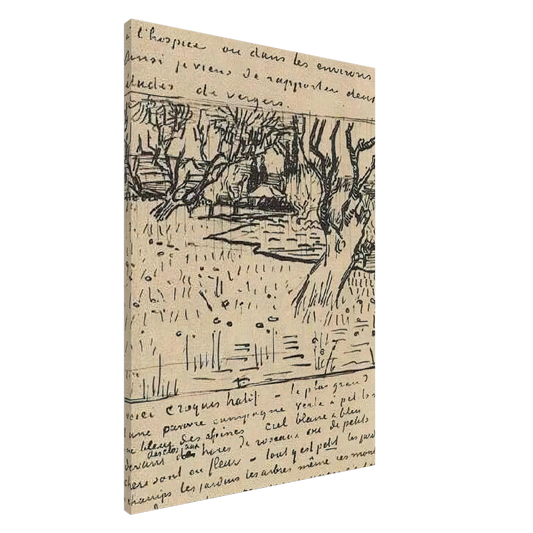 l'hospice ou dans les environs
ainsi je viens de rapporter deux
études de vergers.
voici croquis hatif – le plus grand
une pauvre campagne verte à petits
bleu des alpines ciel blanc & bleu
devant des clos aux haies de roseaux où de petits
sont en fleur – tout y est petit les jardins
champs les jardins les arbres même ces mon